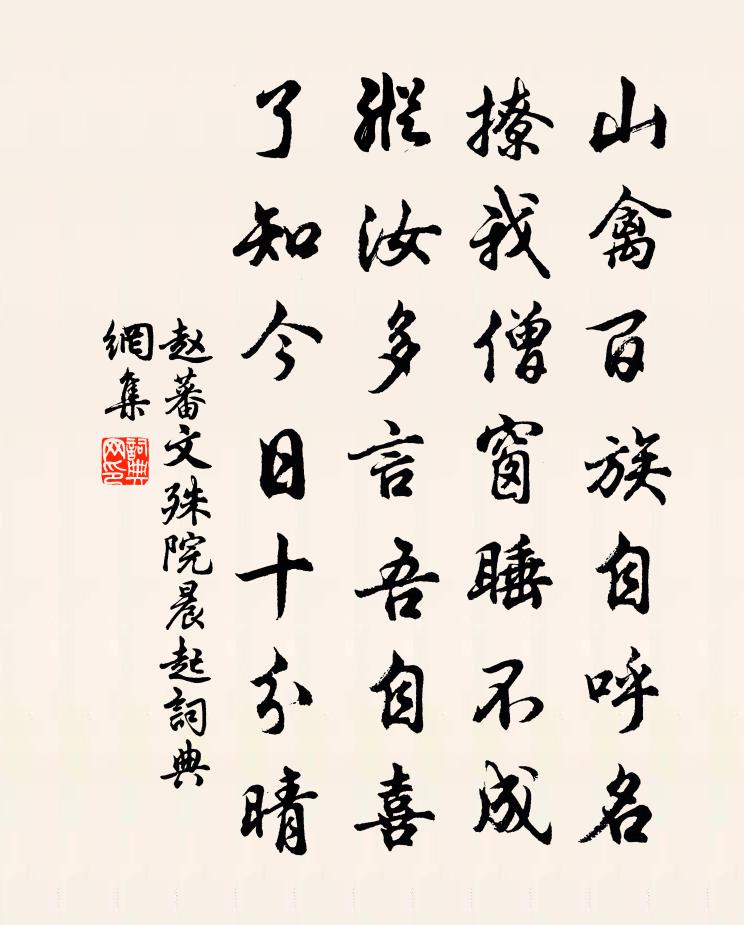 山禽百族自呼名
撩我僧窗睡不成
縱汝多言吾自喜
了知今日十分晴
赵蕃文殊院晨起詞典
網集
詞典
网印